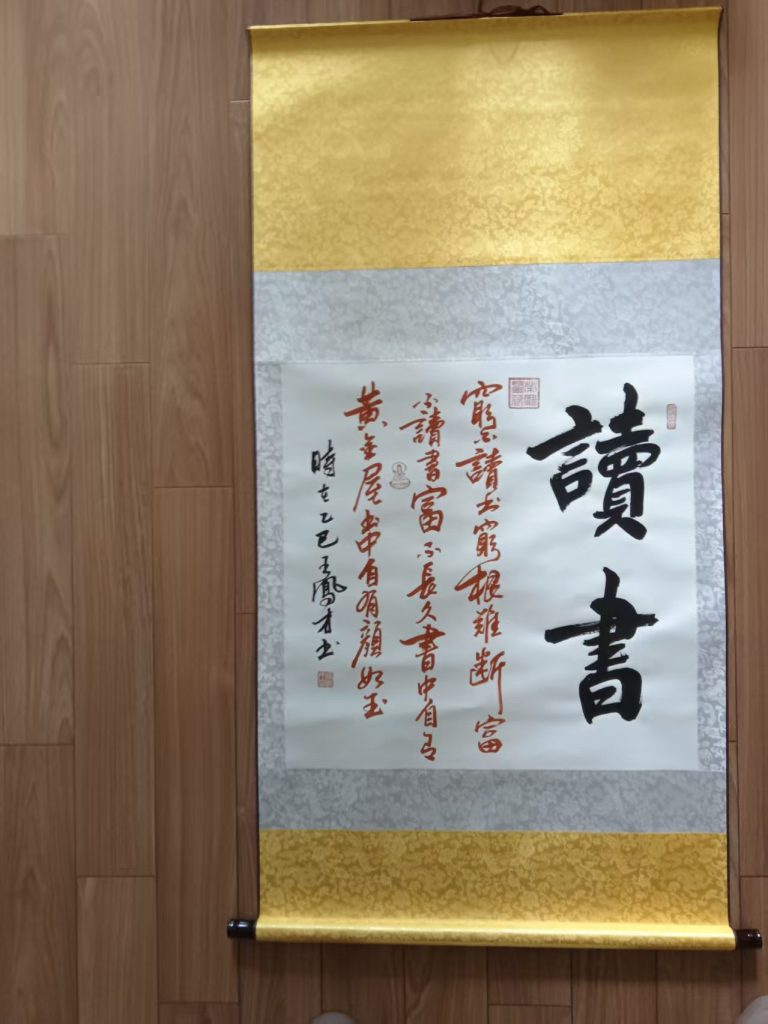 讀書
窮不讀书窮根難断富
不讀書富不長久書中自有
黄金屋書中自有顔如玉
時在乙巳王鳳才书